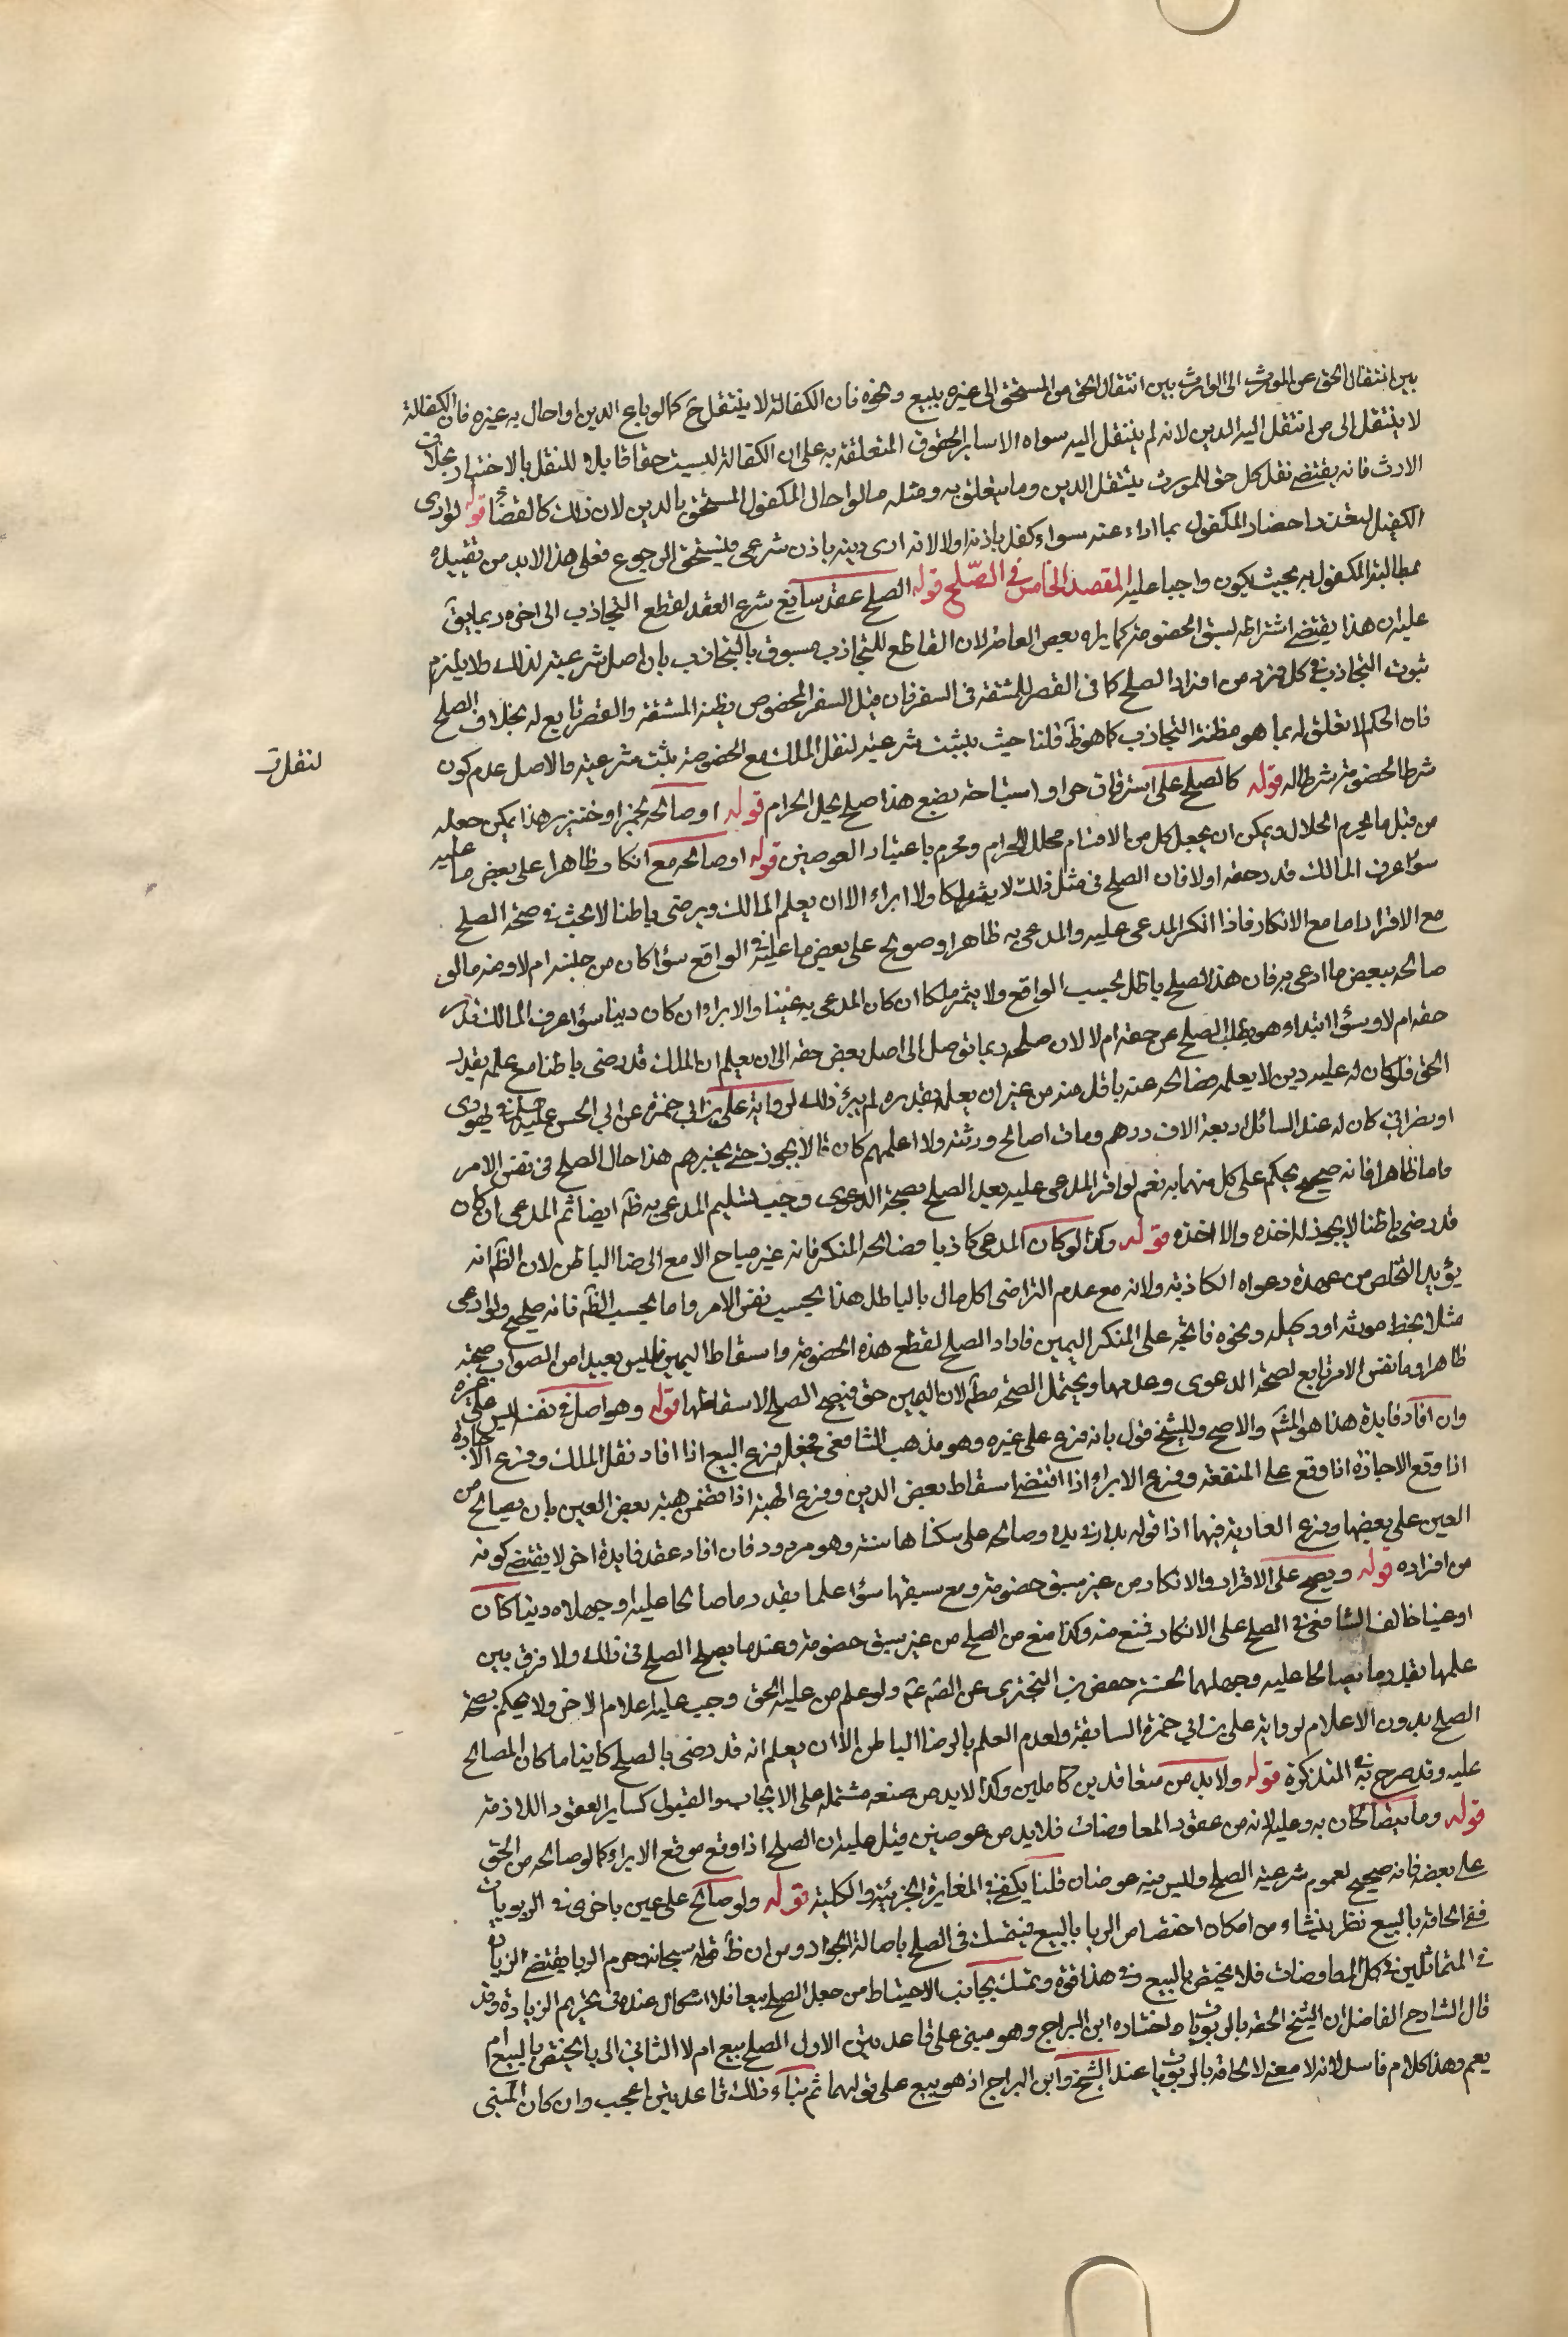 بين انتقال الحق عن المورث الى الوارث بين انتقال الحق من المستحق الى غيره ببيع ونحوه فان الكفالة لا ينتقل ح كما لو باع الدين او احال به غيره فان الكفالة
لا ينتقل الى من انتقل اليه الدين لانه لم ينتقل اليه سواه الا ساير الحقوق المتعلقة به على ان الكفالة ليست حقا قابلا للنقل بالاختيار بخلاف
الارث فانه يقتضي نقل كل حق للمورث ينتقل الدين وما يتعلق به ومثله ما لو احال المكفول المستحق بالدين لان ذلك كالقضاء قوله لو ادى
الكفيل لتعذر احضار المكفول بما اداء عنه سواء كفل باذنه اولا لانه ادى دينه باذن شرعى فيستحق الرجوع فعلى هذا لابد من تقييده
بمطالبة المكفول به بحيث يكون واجبا عليه المقصد الخامس في الصلح قوله الصلح عقد سايغ شرع العقد لقطع التجاذب الى اخره ربما يق
عليه ان هذا يقتضى اشتراطه لسبق الخصومة كما يراه بعض العامة لان القاطع للتجاذب مسبوق بالتجاذب بان اصل شرعيته لذلك ولا يلزم
ثبوت التجاذب في كل فرد من افراد الصلح كما فى القصر للمشقة فى السفر فان قيل السفر المخصوص مظنة المشقة والقصر تابع له بخلاف الصلح
فان الحكم لا تعلق له بما هو مظنة التجاذب كما هو ظ قلنا حيث يثبت شرعية لنقل الملك مع الخصومة يثبت شرعيته والاصل عدم كون
لنقل ت
شرط الخصومة شرطا له قوله كالصلح على استرقاق حر او استباحة بضع هذا صلح يحل الحرام قوله او صالحه بخمر او خنزير هذا يمكن جعله
من قبل ما يحرم الحلال ويمكن ان يجعل كل من الاقسام محلل الحرام ومحرم باعتبار العوضين قوله او صالحه مع انكاره ظاهرا على بعض ما عليه
سواء عرف المالك قدر حقه اولا فان الصلح فى مثل ذلك لا يثمر ملكا ولا ابراء الا ان يعلم المالك ويرضى باطنا لا بحث في صحة الصلح
مع الاقرار اما مع الانكار فاذا انكر المدعى عليه والمدعى به ظاهرا وصولح على بعض ما عليه في الواقع سواء كان من جنسه ام لا ومنه ما لو
صالحه ببعض ما ادعى به فان هذا الصلح باطل بحسب الواقع ولا يثمر ملكا ان كان المدعى به عينا والابراء ان كان دينا سواء عرف المالك قدر
حقه ام لا وسواء ابتداء وهو بطلب الصلح عن حقه ام لا لان صلحه ربما توصل الى اصل بعض حقه الى ان يعلم ان الملك قد رضى باطنا مع علمه بقدر
الحق فلو كان له عليه دين لا يعلمه فصالحه عنه باقل منه من غير ان يعلمه بقدره لم يبرء ذلك لرواية على بن ابى حمزة عن ابي الحسن عليه السلم في يهودى
او نصرانى كان له عند السائل اربعة الاف درهم ومات اصالح ورثته ولا اعلمهم كان قال لا يجوز حتى يخبرهم هذا حال الصلح فى نفس الامر
واما ظاهرا فانه صحيح يحكم على كل منهما به نعم لو اقر المدعى عليه بعد الصلح بصحة الدعوى وجب تسليم المدعى به ظ ايضا ثم المدعى ان كان
قد رضى باطنا لا يجوز له اخذه والا اخذه قوله وكذا لو كان المدعى كاذبا فصالحه المنكر فانه غير مباح الا مع الرضا الباطن لان الظ انه
يؤيد التخلص من عهدة دعواه الكاذبة ولانه مع عدم التراضى اكل مال بالباطل هذا بحسب نفس الامر واما بحسب الظ فانه صحيح ولو ادعى
مثلا بخط مورثه او وكيله ونحوه فاتجه على المنكر اليمين فاراد الصلح لقطع هذه الخصومة واسقاط اليمين فليس بعيدا من الصواب صحته
ظاهرا وما نفس الامر تابع لصحة الدعوى وعدمها ويحتمل الصحة مط لان اليمين حق فيصح الصلح لاسقاطها قوله وهو اصل في نفسه ليس على غيره
وان افاد فايدة هذا هو المشهر والاصح وللشيخ قول بانه فرع على غيره وهو مذهب الشافعى فجعله فرع البيع اذا افاد نقل الملك وفرع الاجارة
اذا وقع الاجارة اذا وقع على المنفعة وفرع الابراء اذا اقتضى اسقاط بعض الدين وفرع الهبة اذا تضمن هبة بعض العين بان يصالح من
العين على بعضها وفرع العارية فيهما اذا قوله بدار في يده وصالحه على سكناها سنة وهو مردود فان افاد عقد فايدة اخر لا يقتضى كونه
من افراده قوله ويصح على الاقرار والانكار من غير سبق خصومة ومع سبقها سواء علما بقدر ما صالحا عليه او جهلاه دينا كان
او عينا خالف الشافعى في الصلح على الانكار فمنع منه وكذا منع من الصلح من غير سبق خصومة وعندنا يصح الصلح فى ذلك ولا فرق بين
علمهما بقدر ما يصالحا عليه وجهلهما لحسنة حفص بن البخترى عن الصم عم ولو علم من عليه الحق وجب عليه اعلام الاخر ولا يحكم بصحة
الصلح بدون الاعلام لرواية على بن ابي حمزة السابقة ولعدم العلم بالرضا الباطن الا ان يعلم انه قد رضى بالصلح كاينا ما كان المصالح
عليه وقد صرح به في التذكرة قوله ولابد من متعاقدين كاملين وكذا لابد من صنعه مشتملة على الايجاب والقبول كساير العقود اللازمة
قوله وما يتصالحان به وعليه لانه من عقود المعاوضات فلابد من عوضين قيل عليه ان الصلح اذا وقع موقع الابراء كما لو صالحه من الحق
على بعضه فانه صحيح لعموم شرعية الصلح وليس فيه عوضان قلنا يكفي في المغايرة الجزئية والكلية قوله ولو صالح على عين باخرى في الربويات
ففي الحاقه بالبيع نظر ينشاء من امكان اختصاص الربا بالبيع فيتمسك فى الصلح باصالة الجواز ومن ان ظ قوله سبحانه وحرم الربا يقتضى الربا
في المتماثلين في كل المعاوضات فلا يختص بالبيع وفى هذا قوة وتمسك بجانب الاحتياط من جعل الصلح بيعا فلا اشكال عنده فى تحريم الزيادة وقد
قال الشارح الفاضل ان الشيخ الحقه بالربويات واختاره ابن البراج وهو مبنى على قاعدتين الاولى الصلح بيع ام لا الثانى الربا يختص بالبيع ام
يعم وهذا كلام فاسد لانه لا معنى لالحاقه بالربويات عند الشيخ وابن البراج اذ هو بيع على قولهما ثم بناء ذلك قاعدتين اعجب وان كان المبنى